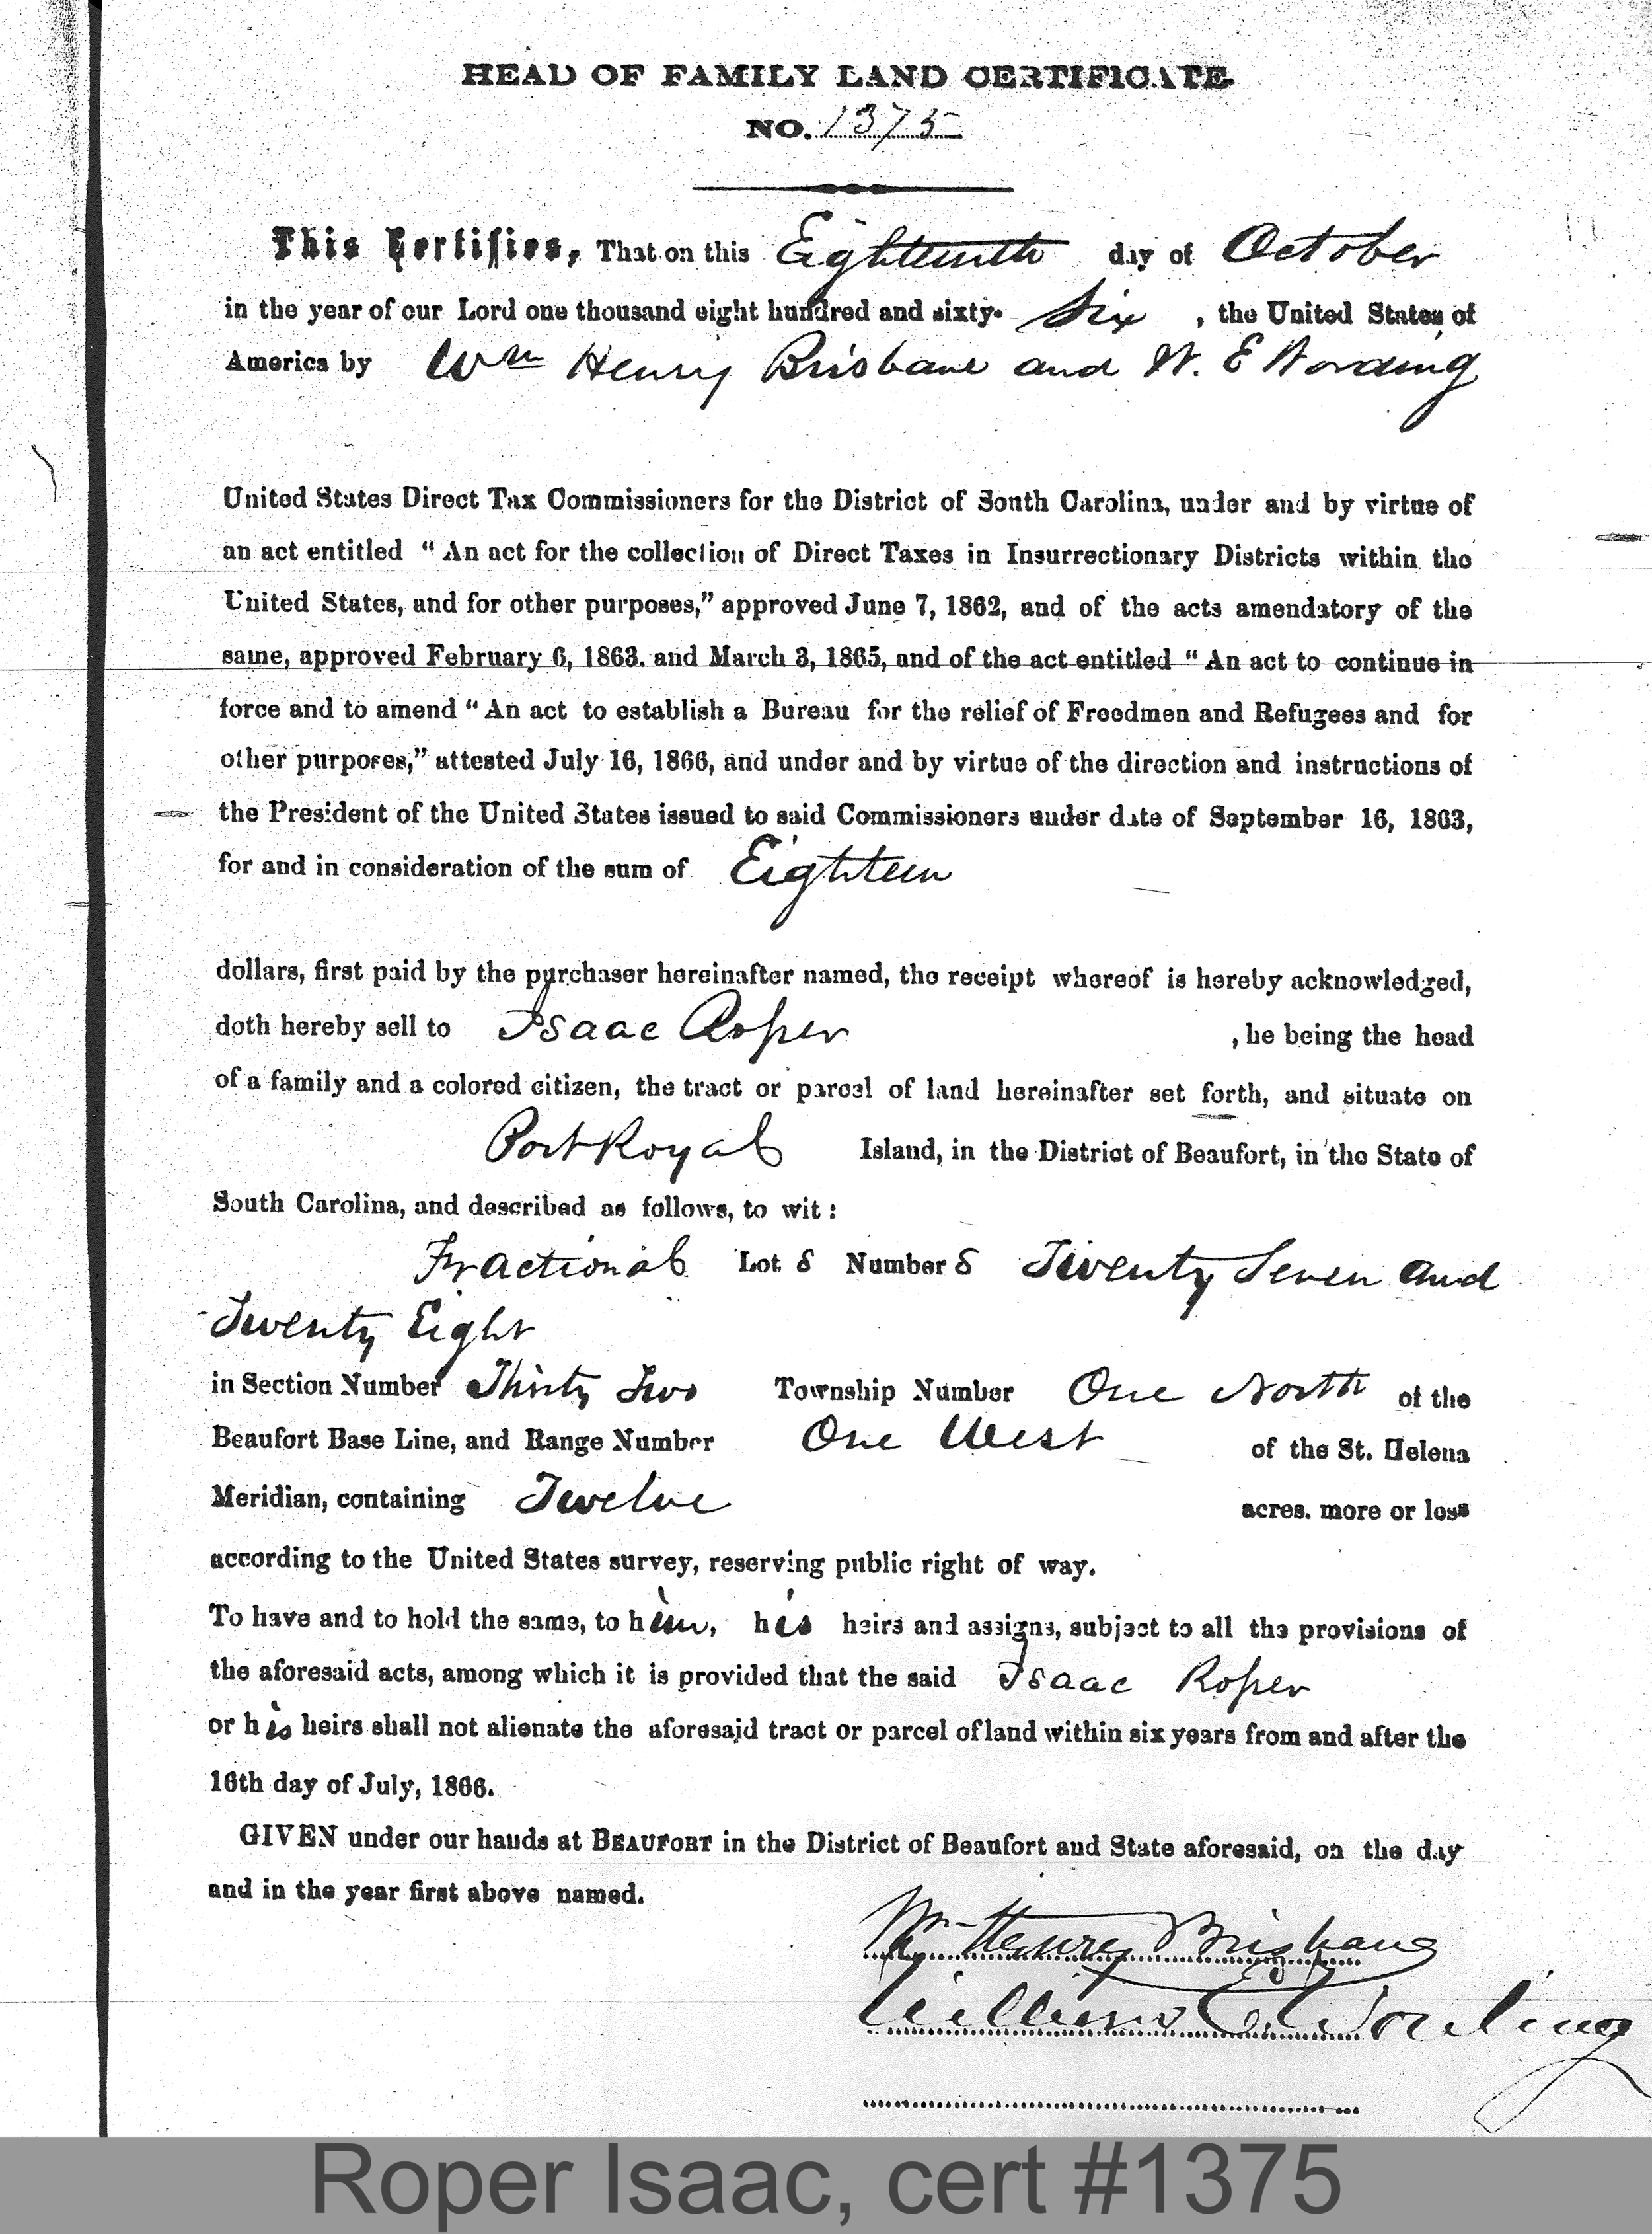 HEAD OF FAMILY LAND CERTIFICATE.
NO. 1375
This Certifies, That on this Eighteenth day of October
in the year of our Lord one thousand eight hundred and sixty- Six , the United States of
America by Wm Henry Brisbane and W. E Wording
United States Direct Tax Commissioners for the District of South Carolina, under and by virtue of
an act entitled “ An act for the collection of Direct Taxes in Insurrectionary Districts within the
United States, and for other purposes,” approved June 7, 1862, and of the acts amendatory of the
same, approved February 6, 1863. and March 3, 1865, and of the act entitled “ An act to continue in
force and to amend “ An act to establish a Bureau for the relief of Freedmen and Refugees and for
other purposes,” attested July 16, 1866, and under and by virtue of the direction and instructions of
the President of the United States issued to said Commissioners under date of September 16, 1863,
for and in consideration of the sum of Eighteen
dollars, first paid by the purchaser hereinafter named, the receipt whereof is hereby acknowledged,
doth hereby sell to Isaac Roper , he being the head
of a family and a colored citizen, the tract or parcel of land hereinafter set forth, and situate on
Port Royal Island, in the District of Beaufort, in the State of
South Carolina, and described as follows, to wit :
Fractional Lot s Number s Twenty Seven and
Twenty Eight
in Section Number Thirty Two Township Number One North of the
Beaufort Base Line, and Range Number One West of the St. Helena
Meridian, containing Twelve acres. more or less
according to the United States survey, reserving public right of way.
To have and to hold the same, to him, his heirs and assigns, subject to all the provisions of
the aforesaid acts, among which it is provided that the said Isaac Roper
or his heirs shall not alienate the aforesaid tract or parcel of land within six years from and after the
16th day of July, 1866.
GIVEN under our hands at BEAUFORT in the District of Beaufort and State aforesaid, on the day
and in the year first above named.
Wm Henry Brisbane
William E. Wording
Roper Isaac, cert #1375